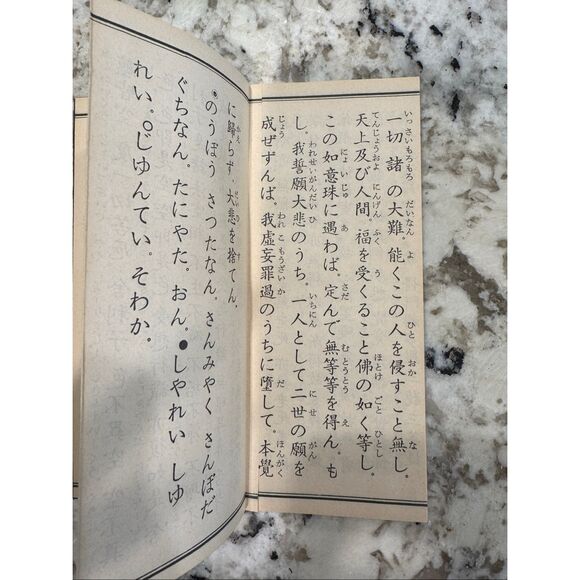 一切諸の大難。能くこの人を侵すこと無し。
天上及び人間。福を受くること佛の如く等し。
この如意珠に遇わば。定んで無等等を得ん。も
し。我誓願大悲のうち。一人として二世の願を
成ぜずんば。我虚妄罪過のうちに墮して。本覺
に歸らず。大悲を捨てん。
のうぼう さつたなん。さんみやく さんぼだ
ぐちなん。たにやた。おん。●しやれい しゆ
れい。○じゆんてい。そわか。